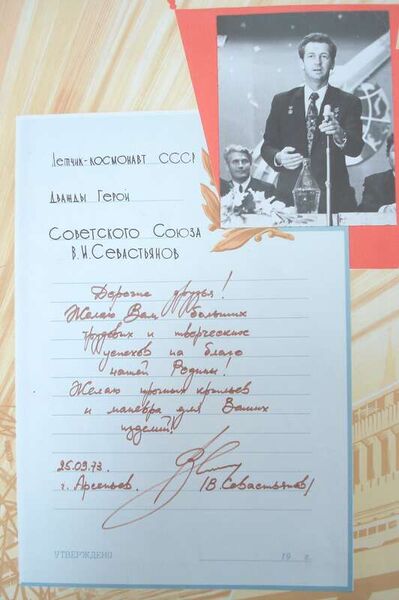 Летчик-космонавт СССР
Дважды Герой
Советского Союза
В.И.Севастьянов
Дорогие друзья!
Желаю Вам больших
трудовых и творческих
успехов на благо
нашей Родины!
Желаю прочных крыльев
и маневра для Ваших
изделий!
25.09.73.
г. Арсеньев. /В.Севастьянов/
УТВЕРЖДЕНО 19 г.